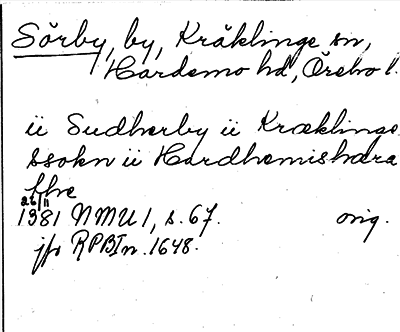 Sörby, by, Kräklinge sn,
Hardemo hd, Örebro l.
ü Sudherby ü Kræklinge
ssokn ü Hardhemishæra
ffve
26/11
1381 NMU 1, s. 67. orig.
jfr RPBI n. 1648.